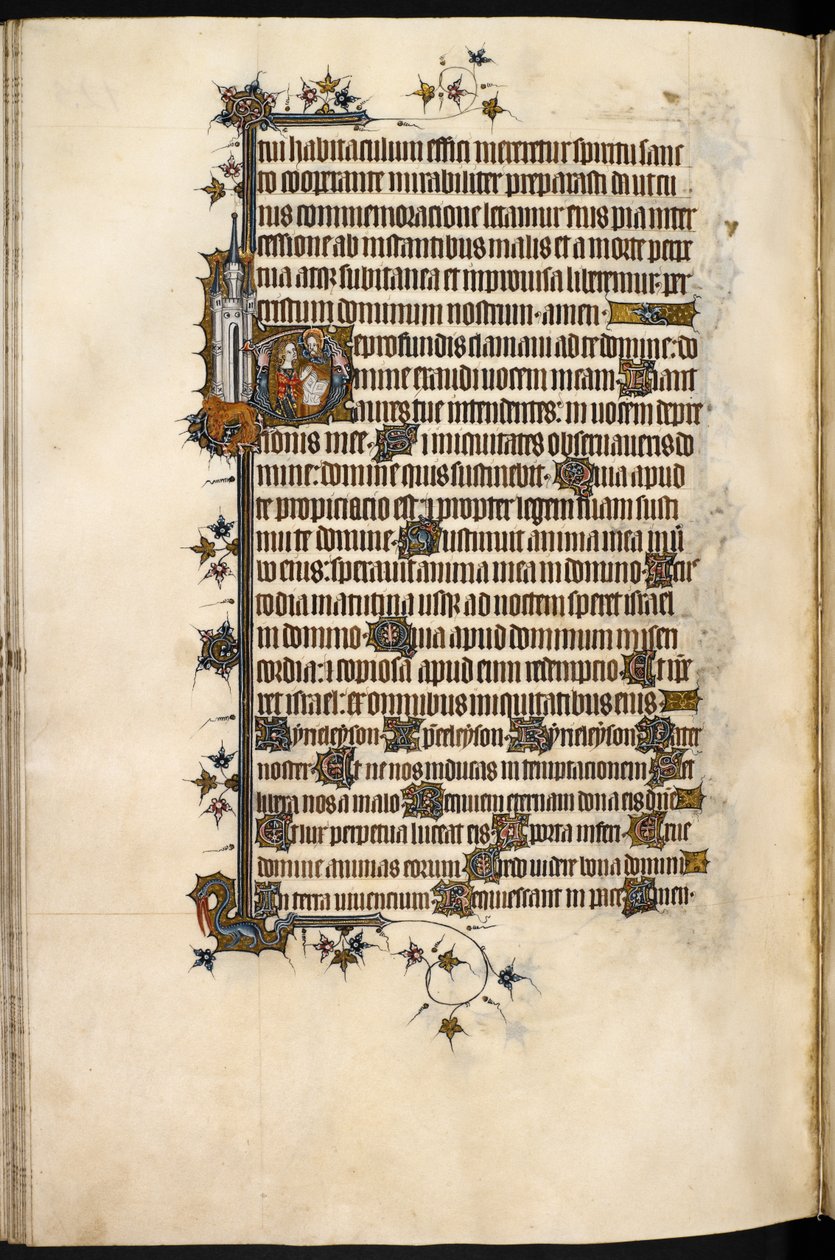 tui habitaculum effici mereretur spiritu sanc
to cooperante mirabiliter preparasti da ut cu
ius commemoracione letamur eius pia inter
cessione ab instantibus malis et a morte perpe
tua atqꝫ subitanea et inprouisa liberemur· per
cristum dominum nostrum· amen·
De profundis clamaui ad te domine: do
mine exaudi uocem meam· Fiant
aures tue intendentes: in uocem depre
cionis mee· Si iniquitates obseruaueris do
mine: domine quis sustinebit· Quia apud
te propiciacio est: ⁊ propter legem tuam susti
nui te domine· Sustinuit anima mea in ū
bo eius: sperauit anima mea in domino· A cus
todia matutina usqꝫ ad noctem speret israel
in domino· Quia apud dominum miseri
cordia: ⁊ copiosa apud eum redempcio· Et ip̄e
ret israel: ex omnibus iniquitatibus eius·
Kyrieleyson· Xp̄eeleyson· Kyrieleyson· Pater
noster· Et ne nos inducas in temptacionem· Set
libera nos a malo· Requiem eternam dona eis dn̄e
Et lux perpetua luceat eis· A porta inferi· Erue
domine animas eorum· Credo uidere bona domini
In terra uiuencium· Requiescant in pace· Amen·